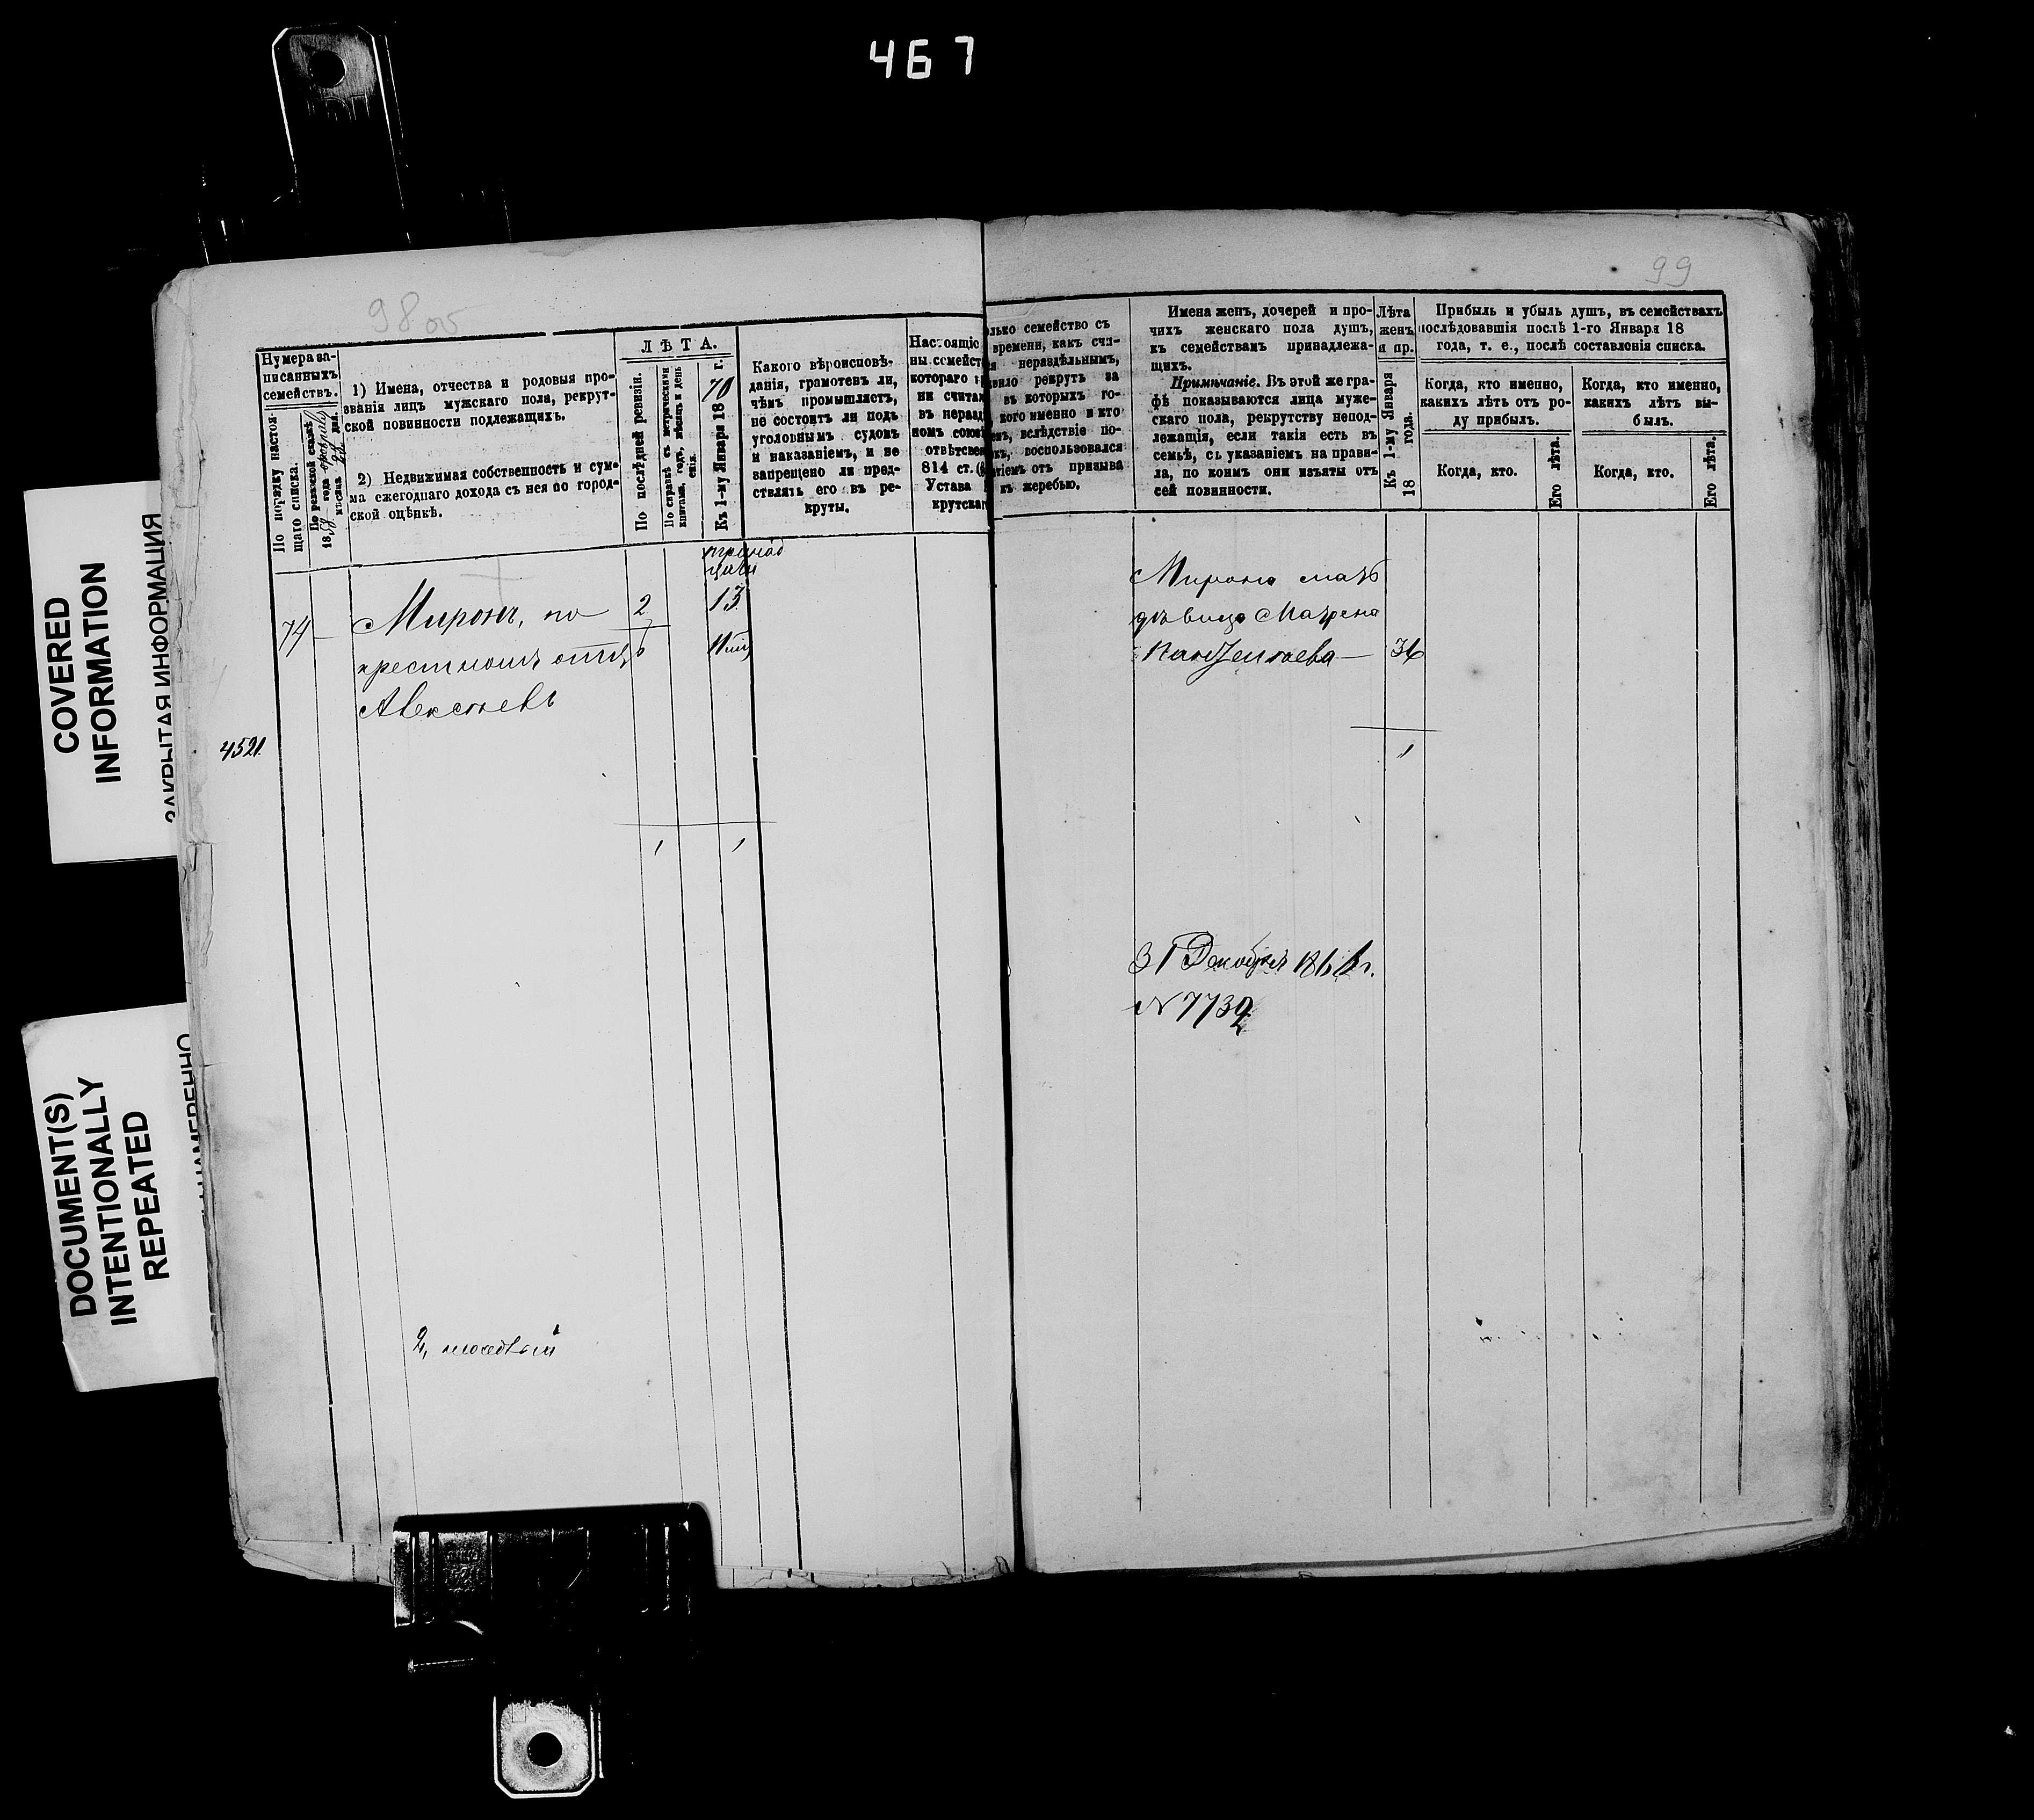 467
COVERED
INFORMATION
ЗАКРЫТАЯ ИНФОРМАЦИЯ
DOCUMENT(S)
INTENTIONALLY
REPEATED
98 об
Нумера за-
писанныхъ
семействъ.
По порядку настоя-
щаго списка.
По ревизской сказкѣ
1858 года
мѣсяца дня.
1) Имена, отчества и родовыя про-
званія лицъ мужскаго пола, рекрут-
ской повинности подлежащихъ.
2) Недвижимая собственность и сум-
ма ежегоднаго дохода съ нея по город-
ской оцѣнкѣ.
ЛѢТА.
По послѣдней ревизіи.
По справкѣ съ метрическими
книгами, годъ, мѣсяцъ и день
Къ 1-му Января 1870 г.
Какого вѣроисповѣ-
данія, грамотенъ ли,
чѣмъ промышляетъ,
не состоитъ ли подъ
уголовнымъ судомъ
и наказаніемъ, и не
запрещено ли пред-
ствлять его въ ре-
круты.
Настоящіе
ны семейст
котораго
ни считал
въ нераз
номъ союз
отвѣтсвен
814 ст.
Устава
крутскаг
74
Миронъ, по
крестномъ отцѣ
Алексѣевъ
2
13
4521
1 1
99
олько семейство съ
времени, какъ счи-
я нераздѣльнымъ,
вило рекрутъ за
въ которыхъ го-
кого именно и кто
нъ, вслѣдствіе по-
къ, воспользовался
тіемъ отъ призыва
къ жеребью.
Имена женъ, дочерей и про-
чихъ женскаго пола душъ,
къ семействамъ принадлежа-
щихъ.
Примѣчаніе. Въ этой же гра-
фѣ показываются лица муже-
скаго пола, рекрутству непод-
лежащія, если такія есть въ
семьѣ, съ указаніемъ на прави-
ла, по коимъ они изъяты отъ
сей повинности.
Лѣта
женъ
и пр.
Къ 1-му Января
18 года.
Прибыль и убыль душъ, въ семействахъ
послѣдовавшія послѣ 1-го Января 18
года, т. е., послѣ составленія списка.
Когда, кто именно,
какихъ лѣтъ отъ ро-
ду прибылъ.
Когда, кто именно,
какихъ лѣтъ вы-
былъ.
Когда, кто.
Его лѣта.
Когда, кто.
Его лѣта.
Мирона мать
дѣвица
36
1
31 Декабря 1866 г.
N 7732